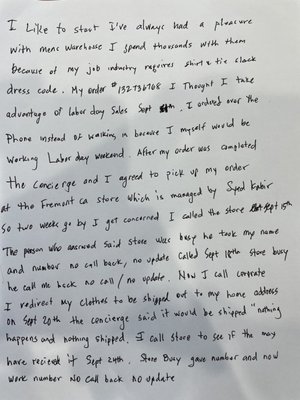 I Like to start I've always had a pleasure
with mens warehouse I spend thousands with them
Because of my job industry requires shirt & tie slack
dress code. My order #132736708 I Thought I take
advantage of labor day Sales Sept. I ordered over the
Phone instead of walking in because I myself would be
Working Labor day weekend. After my order was completed
the concierge and I agreed to pick up my order
at the Fremont ca store which is managed by Syed Kabir
So two weeks go by I get concerned I called the store Sept 15th
The person who answered said store was busy he took my name
and number no call back, no update called Sept 18th store busy
he call me back no call / no update. Now I call corporate
I redirect my clothes to be shipped out to my home address
on Sept 20th the concierge said it would be shipped "nothing
happens and nothing shipped. I call store to see if the may
have recieved it Sept 24th. Store Busy gave number and now
work number No call back no update